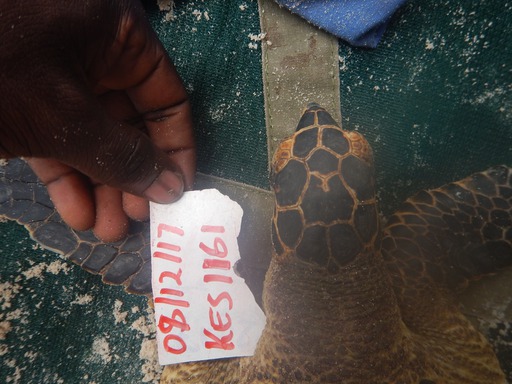 08/12/17
KES1161